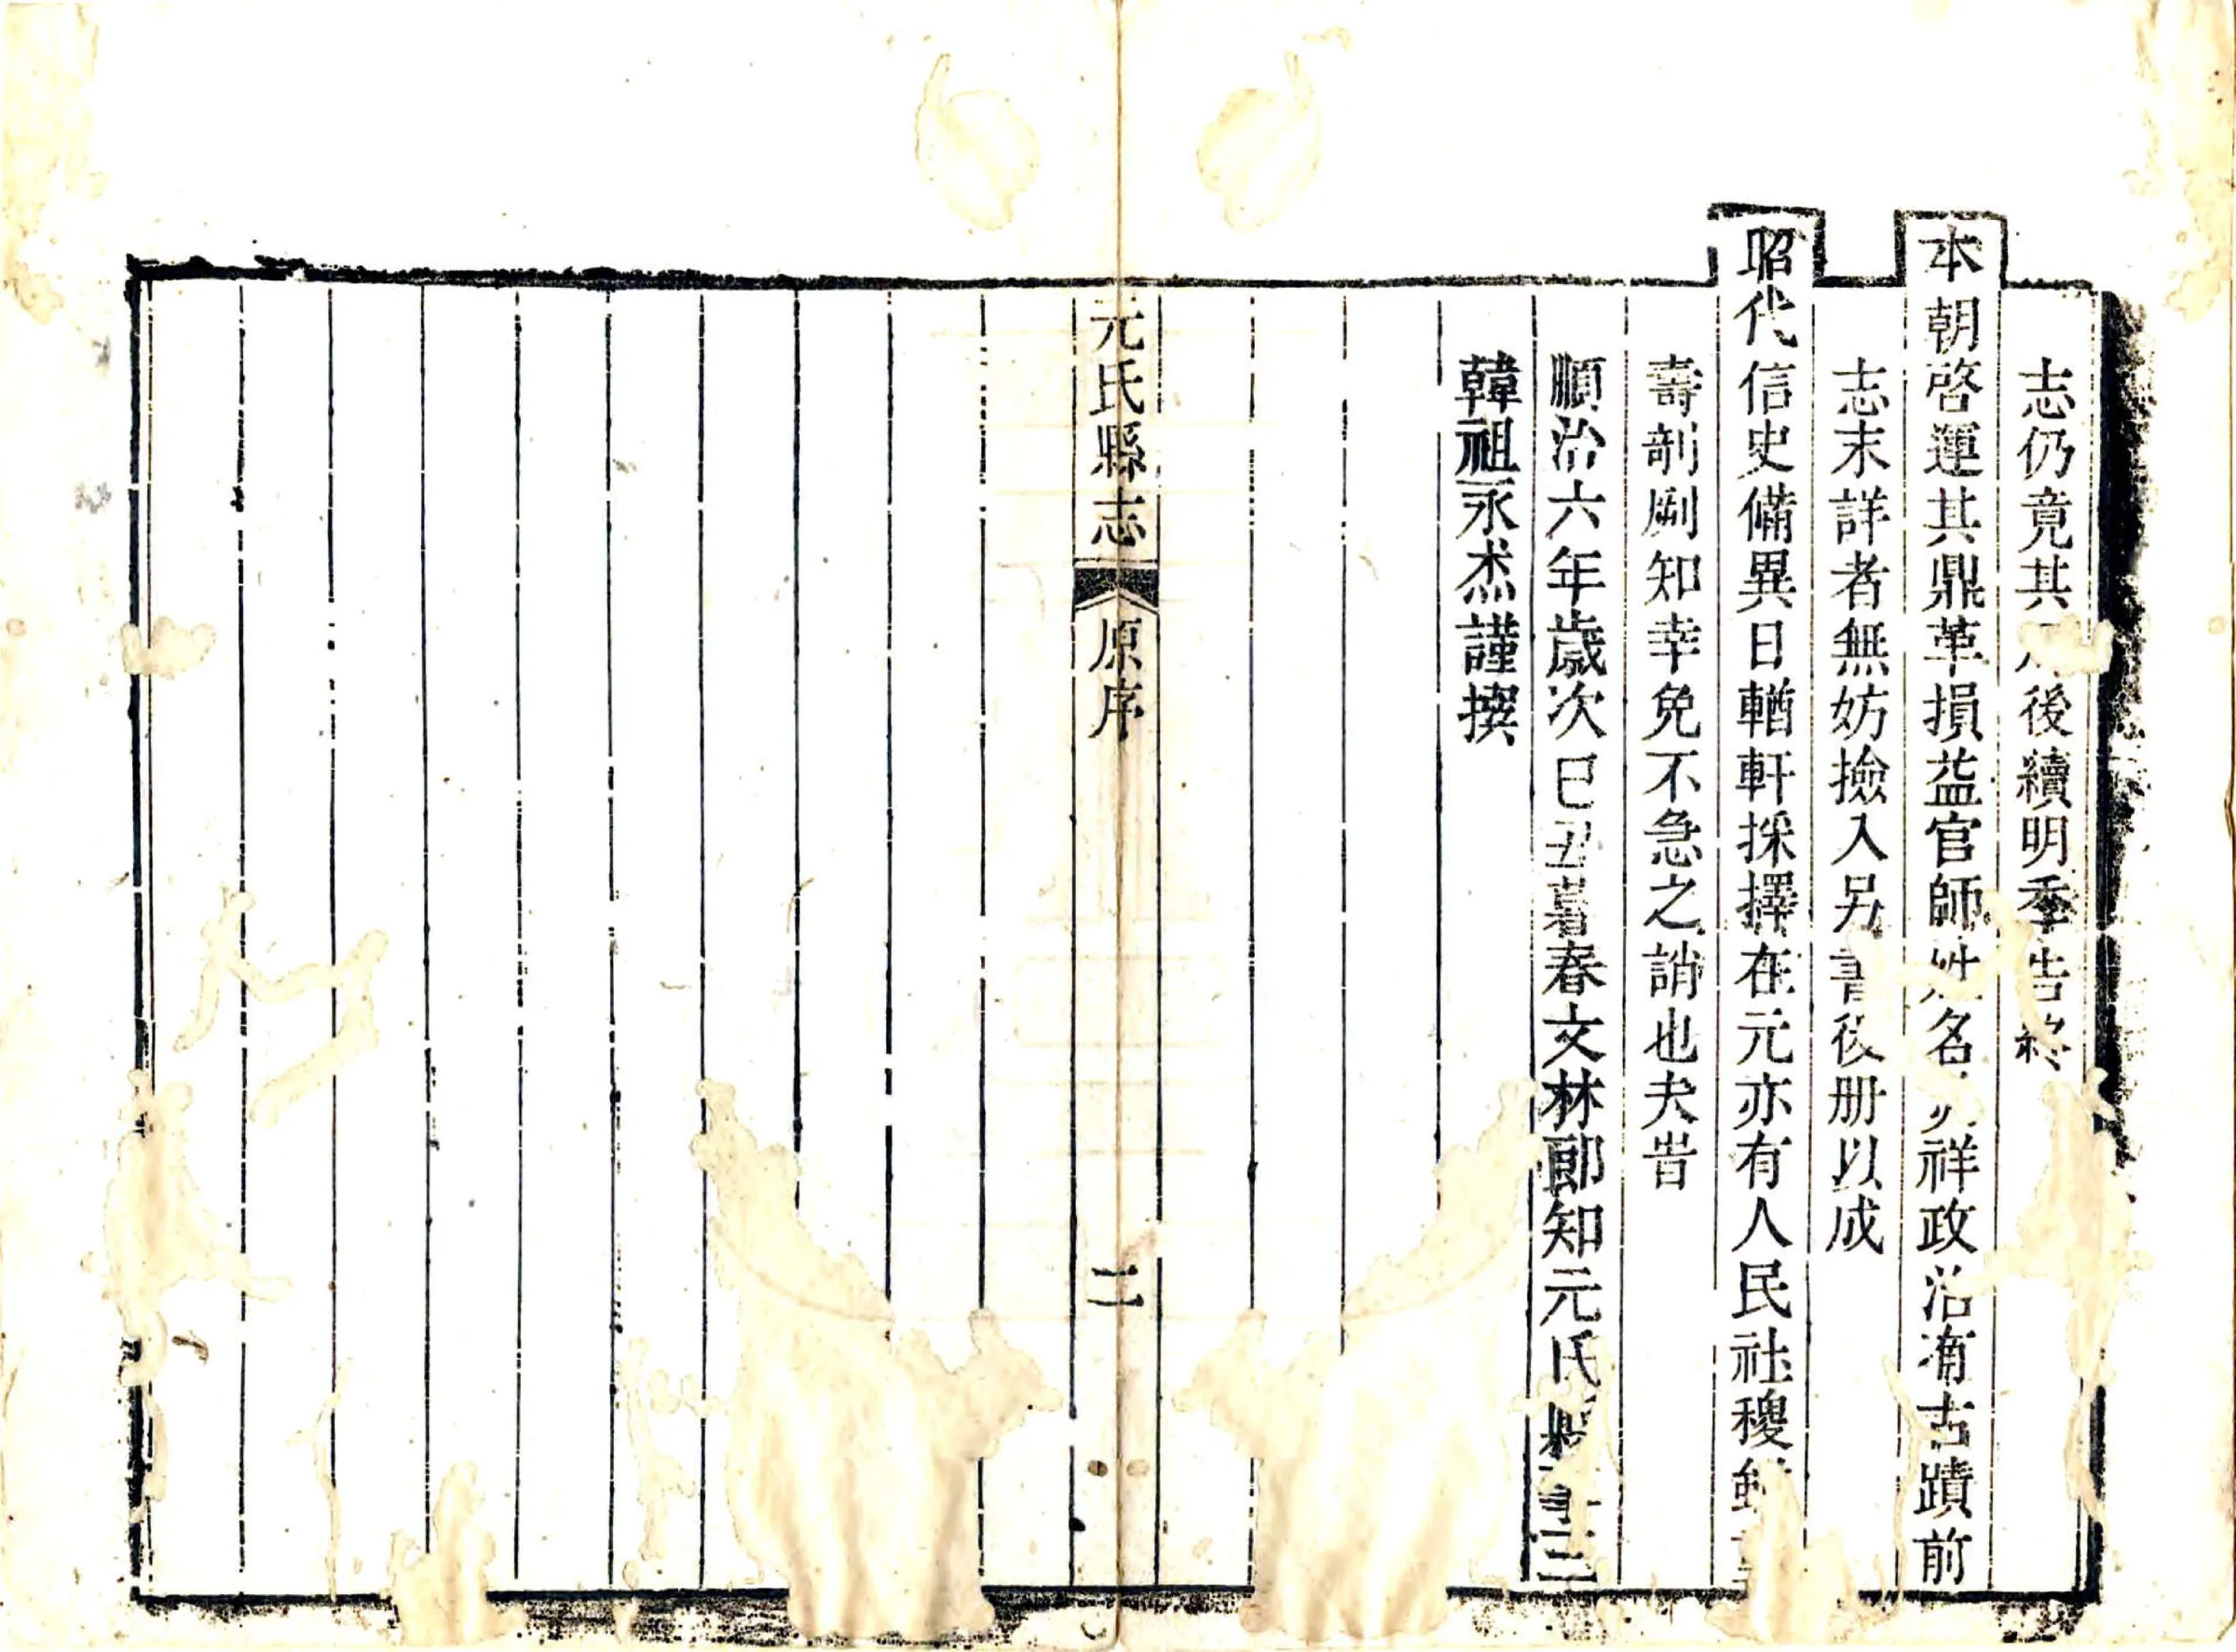 志仍竟其後續明季告終
本朝啓運其鼎革損益官師姓名祥政治有古蹟前
志未詳者無妨撿入另書後册以成
昭代信史備異日輶軒採擇在元亦有人民社稷
壽剞劂知幸免不急之誚也夫旹
順治六年歲次己丑暮春文林郎知元氏縣事三
韓祖永杰謹撰
元氏縣志
原序
二